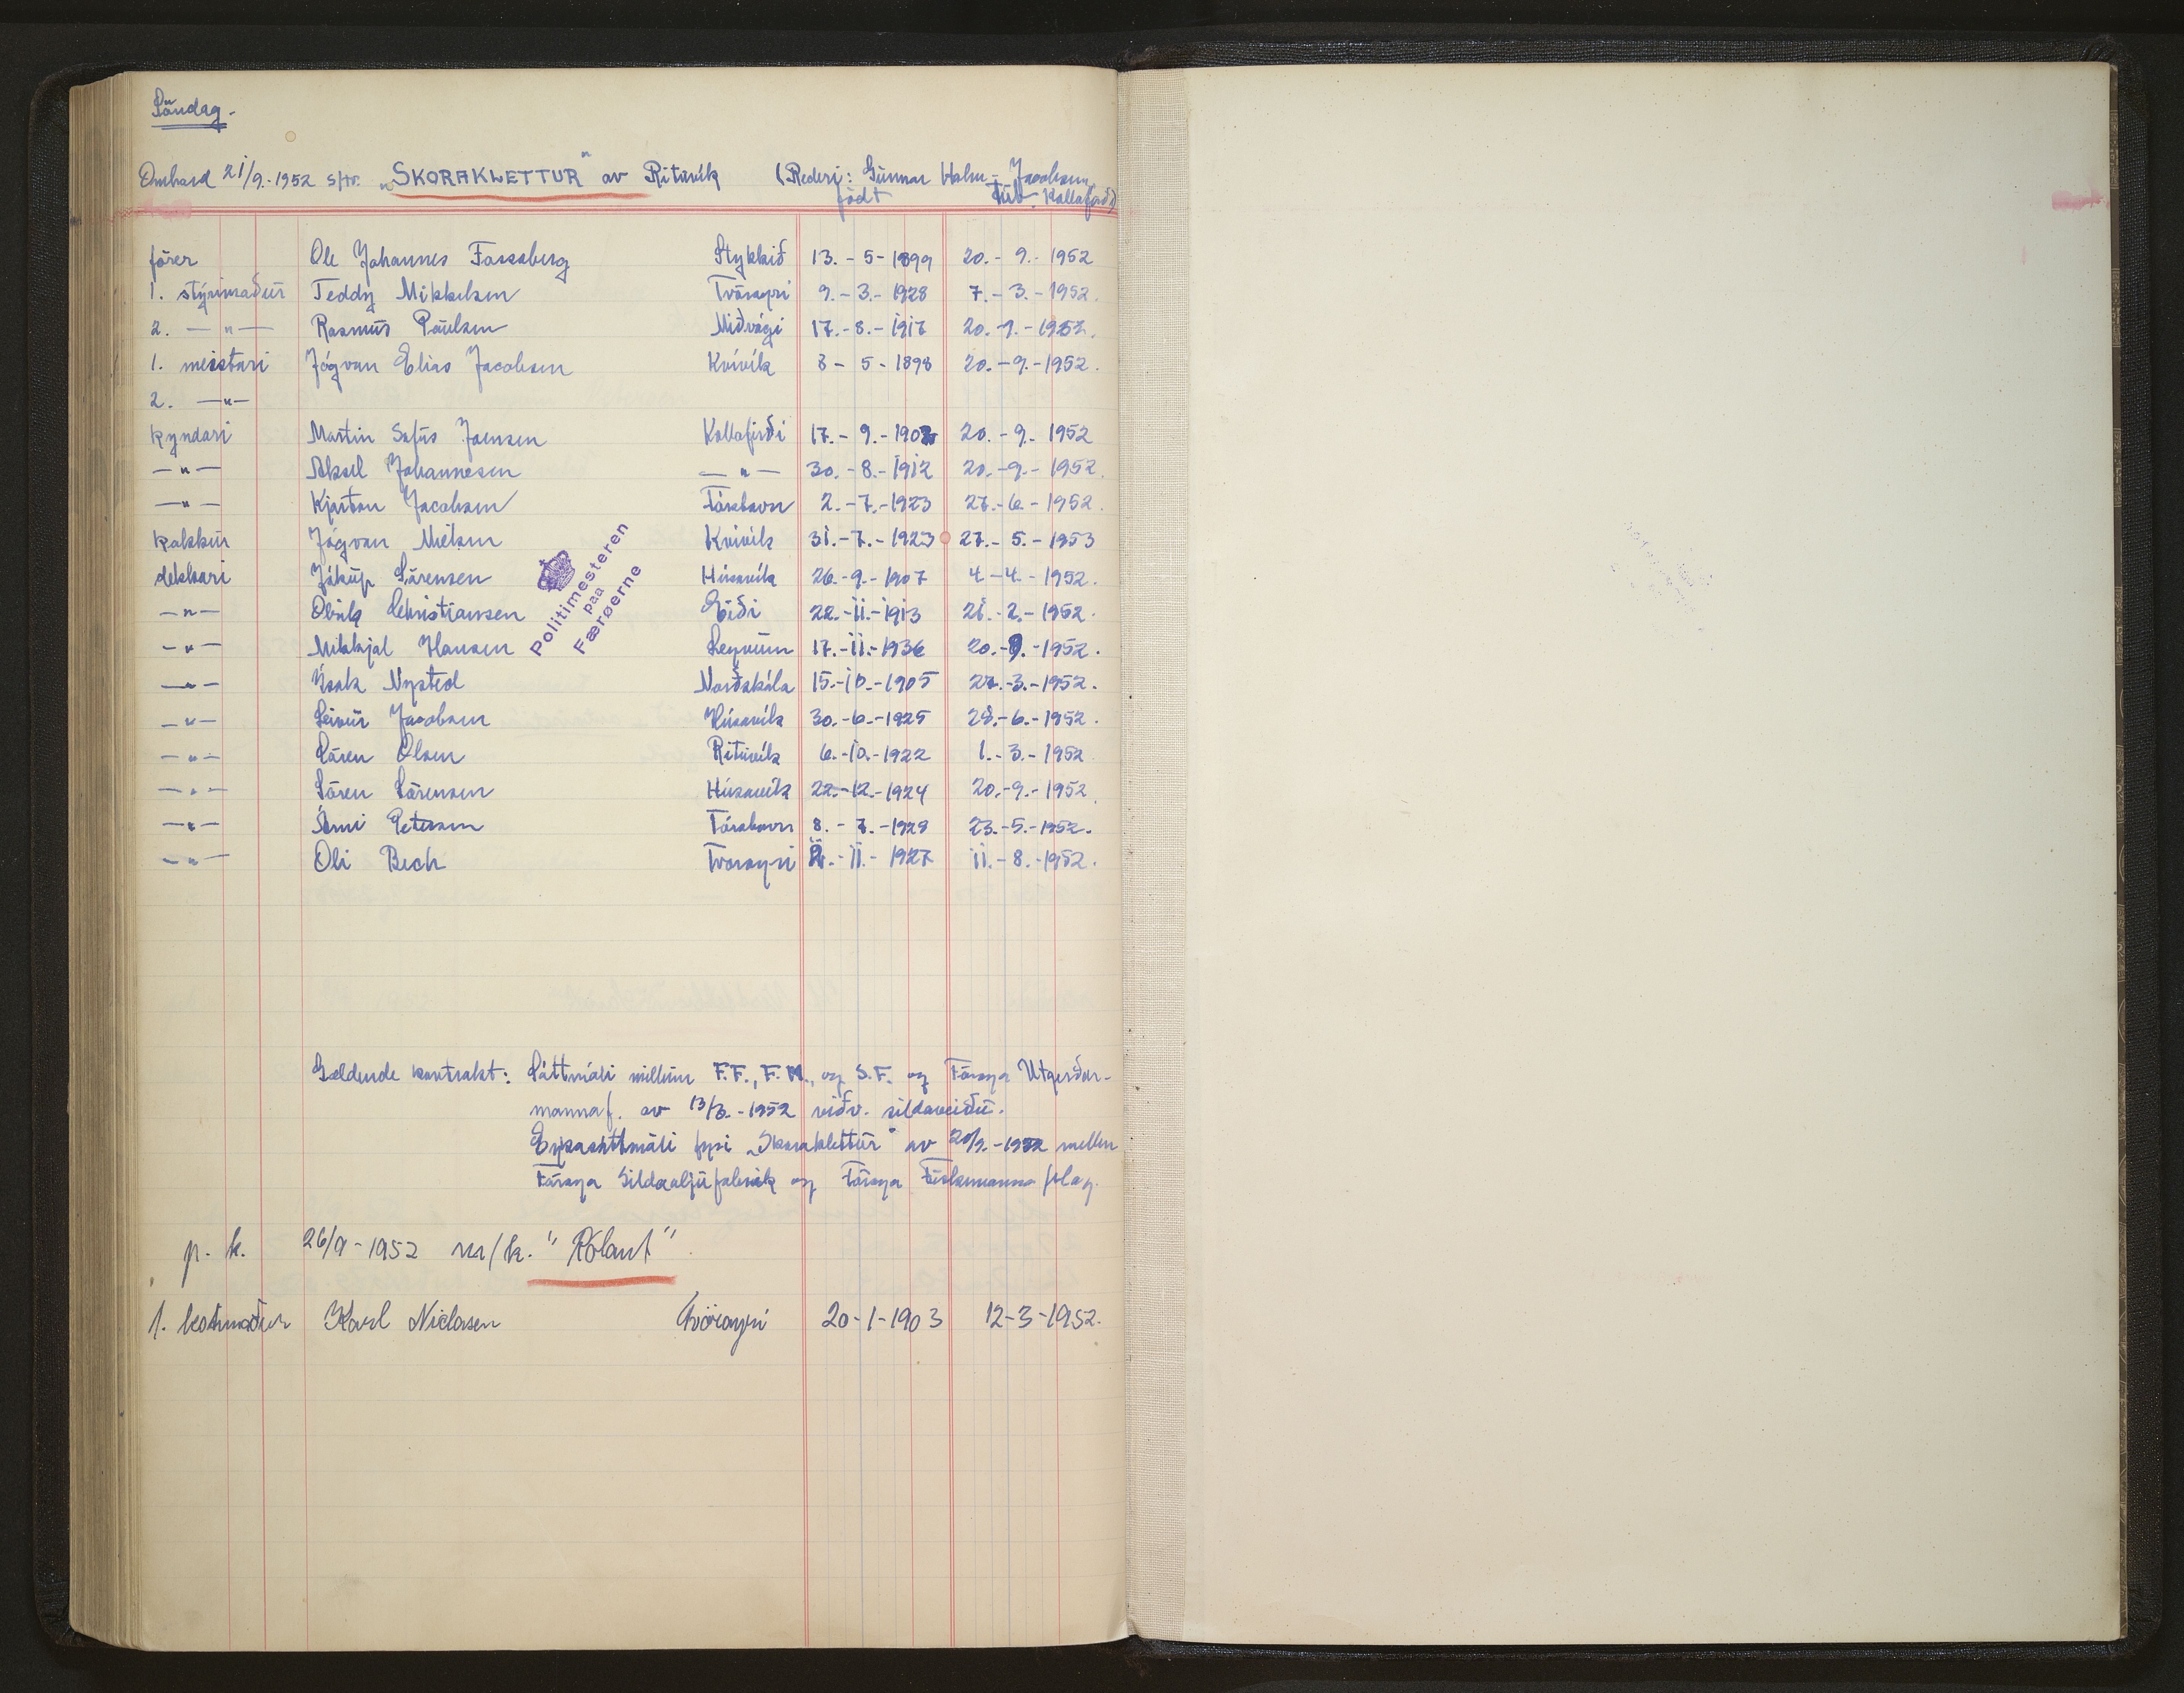 Söndag.
Ombord 21/9.-1952 s/tr. "SKORAKLETTUR" av Rituvík (Rederi: Gunnar Holm-Jacobsen,
födt Kollafjord)
förer Ole Johannes Fossaberg Stykkið 13.-5-1899 20.-9.-1952
1. stýrimaður Teddy Mikkelsen Tvöroyri 9.-3.-1928 7.-3.-1952.
2. -"- Rasmus Poulsen Miðvági 17.-8.-1917 20.-9.-1952.
1. meistari Jógvan Elias Jacobsen Kvívík 3-5-1898 20.-9.-1952.
2. -"-
kyndari Martin Sofus Joensen Kollafirði 17.-9.-1902 20.-9.-1952
-"- Aksel Johannesen -"- 30.-8.-1912 20.-9.-1952.
-"- Kjartan Jacobsen Tórshavn 2.-7.-1923 27.-6-1952.
kokkur Jógvan Nielsen Kvívík 31.-7.-1923 27.-5.-1953
dekkari Jákup Sörensen Húsavík 26.-9.-1907 4-4.-1952.
-"- Olvik Christiansen Eiði 22.-11.-1913 21.-2.-1952.
-"- Mikkjal Hansen Leynum 17.-11.-1936 20.-9.-1952.
-"- Ísak Nysted Norðskála 15.-10.-1905 27.-3.-1952.
-"- Leivur Jacobsen Húsavík 30.-6.-1925 28.-6.-1952.
-"- Sören Olsen Rituvík 6.-10.-1922 1.-3.-1952
-"- Sören Sörensen Húsavík 22.-12.-1924 20.-9.-1952.
-"- Árni Petersen Tórshavn 8.-7.-1929 23.-5.-1952.
-"- Oli Bech Tvöroyri 11.-1927 11.-8.-1952.
Politimesteren
paa
Færøerne
Gældende kontrakt: Sáttmáli millum F.F., F.M., og S.F. og Föroya Útgerðar-
mannaf. av 13/3.-1952 viðv. sildaveiðu.
Serkasáttmáli fyri "Skoraklettur" av 20/9.-1952 mellem
Föroya Sildaoljufabrik og Föroya Fiskimanna felag.
p. k. 26/9-1952 m/k. "Rólant"
1. kostmaður Karl Niclasen Tvöroyri 20-1-1903 12-3-1952.